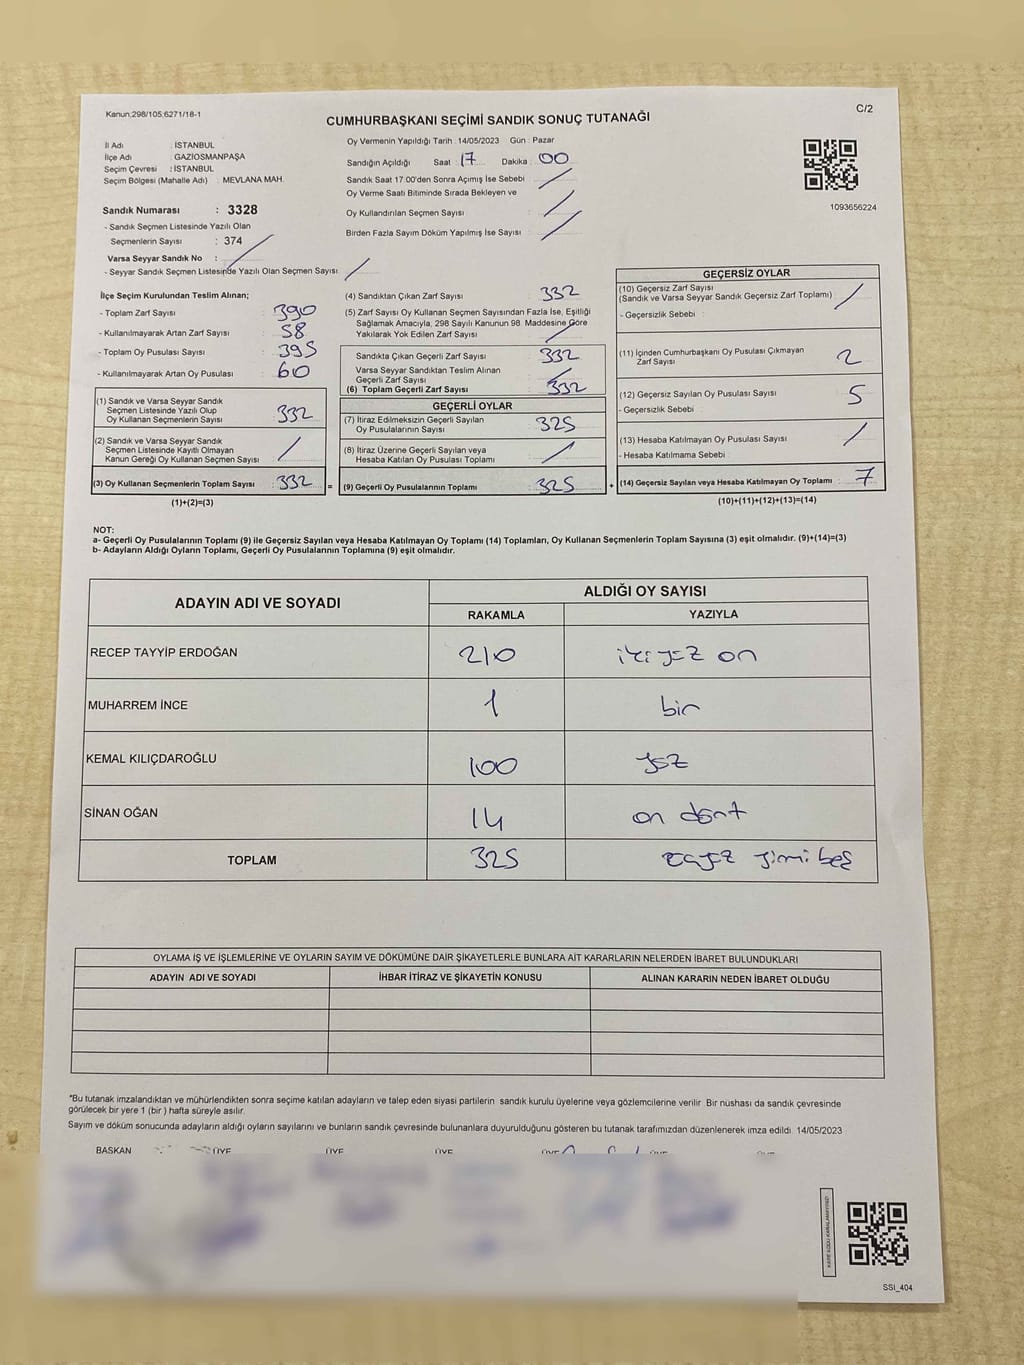 Kanun:298/105;6271/18-1
C/2
CUMHURBAŞKANI SEÇİMİ SANDIK SONUÇ TUTANAĞI
İl Adı : İSTANBUL
İlçe Adı : GAZİOSMANPAŞA
Seçim Çevresi : İSTANBUL
Seçim Bölgesi (Mahalle Adı) : MEVLANA MAH.
Oy Vermenin Yapıldığı Tarih : 14/05/2023 Gün : Pazar
Sandığın Açıldığı Saat 17 Dakika : 00
Sandık Saat 17:00'den Sonra Açımış İse Sebebi
Oy Verme Saati Bitiminde Sırada Bekleyen ve
Oy Kullandırılan Seçmen Sayısı
Birden Fazla Sayım Döküm Yapılmış İse Sayısı
1093656224
Sandık Numarası : 3328
- Sandık Seçmen Listesinde Yazılı Olan
Seçmenlerin Sayısı : 374
Varsa Seyyar Sandık No :
- Seyyar Sandık Seçmen Listesinde Yazılı Olan Seçmen Sayısı
İlçe Seçim Kurulundan Teslim Alınan;
- Toplam Zarf Sayısı : 390
- Kullanılmayarak Artan Zarf Sayısı : 58
- Toplam Oy Pusulası Sayısı : 395
- Kullanılmayarak Artan Oy Pusulası : 60
(1) Sandık ve Varsa Seyyar Sandık
Seçmen Listesinde Yazılı Olup
Oy Kullanan Seçmenlerin Sayısı : 332
(2) Sandık ve Varsa Seyyar Sandık
Seçmen Listesinde Kayıtlı Olmayan
Kanun Gereği Oy Kullanan Seçmen Sayısı
(3) Oy Kullanan Seçmenlerin Toplam Sayısı : 332 =
(1)+(2)=(3)
(4) Sandıktan Çıkan Zarf Sayısı : 332
(5) Zarf Sayısı Oy Kullanan Seçmen Sayısından Fazla İse, Eşitliği
Sağlamak Amacıyla, 298 Sayılı Kanunun 98. Maddesine Göre
Yakılarak Yok Edilen Zarf Sayısı
Sandıkta Çıkan Geçerli Zarf Sayısı : 332
Varsa Seyyar Sandıktan Teslim Alınan
Geçerli Zarf Sayısı
(6) Toplam Geçerli Zarf Sayısı : 332
GEÇERLİ OYLAR
(7) İtiraz Edilmeksizin Geçerli Sayılan
Oy Pusulalarının Sayısı : 325
(8) İtiraz Üzerine Geçerli Sayılan veya
Hesaba Katılan Oy Pusulası Toplamı
(9) Geçerli Oy Pusulalarının Toplamı : 325 +
GEÇERSİZ OYLAR
(10) Geçersiz Zarf Sayısı
(Sandık ve Varsa Seyyar Sandık Geçersiz Zarf Toplamı)
- Geçersizlik Sebebi :
(11) İçinden Cumhurbaşkanı Oy Pusulası Çıkmayan
Zarf Sayısı : 2
(12) Geçersiz Sayılan Oy Pusulası Sayısı : 5
- Geçersizlik Sebebi :
(13) Hesaba Katılmayan Oy Pusulası Sayısı
- Hesaba Katılmama Sebebi :
(14) Geçersiz Sayılan veya Hesaba Katılmayan Oy Toplamı : 7
(10)+(11)+(12)+(13)=(14)
NOT:
a- Geçerli Oy Pusulalarının Toplamı (9) ile Geçersiz Sayılan veya Hesaba Katılmayan Oy Toplamı (14) Toplamları, Oy Kullanan Seçmenlerin Toplam Sayısına (3) eşit olmalıdır. (9)+(14)=(3)
b- Adayların Aldığı Oyların Toplamı, Geçerli Oy Pusulalarının Toplamına (9) eşit olmalıdır.
ADAYIN ADI VE SOYADI ALDIĞI OY SAYISI
RAKAMLA YAZIYLA
RECEP TAYYİP ERDOĞAN 210 iki yüz on
MUHARREM İNCE 1 bir
KEMAL KILIÇDAROĞLU 100 yüz
SİNAN OĞAN 14 on dört
TOPLAM 325 üçyüz yirmi beş
OYLAMA İŞ VE İŞLEMLERİNE VE OYLARIN SAYIM VE DÖKÜMÜNE DAİR ŞİKAYETLERLE BUNLARA AİT KARARLARIN NELERDEN İBARET BULUNDUKLARI
ADAYIN ADI VE SOYADI İHBAR İTİRAZ VE ŞİKAYETİN KONUSU ALINAN KARARIN NEDEN İBARET OLDUĞU
*Bu tutanak imzalandıktan ve mühürlendikten sonra seçime katılan adayların ve talep eden siyasi partilerin sandık kurulu üyelerine veya gözlemcilerine verilir. Bir nüshası da sandık çevresinde
görülecek bir yere 1 (bir ) hafta süreyle asılır.
Sayım ve döküm sonucunda adayların aldığı oyların sayılarını ve bunların sandık çevresinde bulunanlara duyurulduğunu gösteren bu tutanak tarafımızdan düzenlenerek imza edildi. 14/05/2023
BAŞKAN ÜYE ÜYE ÜYE ÜYE ÜYE
KARE KODU KARALAMAYINIZ!
SSI_404